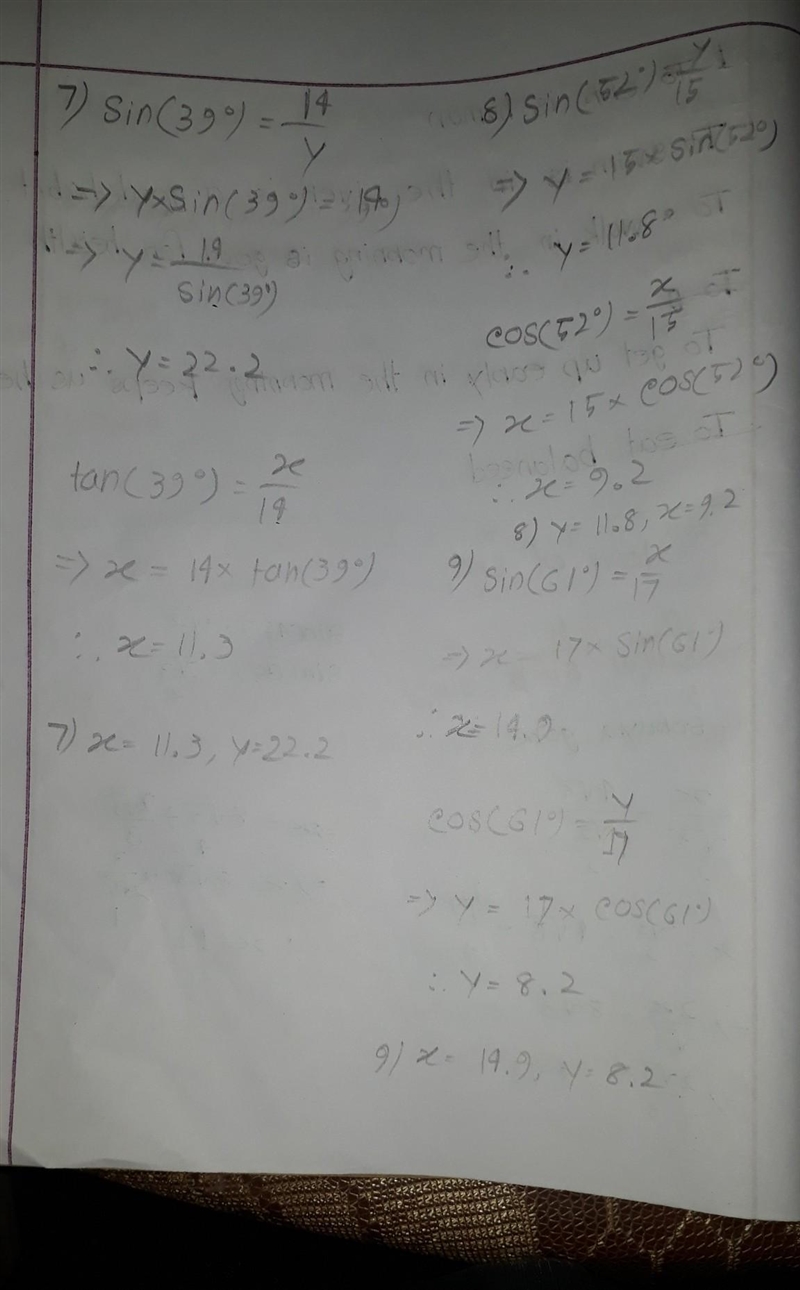 7) Sin(39°) = 14/y
=> y×Sin(39°) = 14
=> y = 14/Sin(39°)
∴ y = 22.2
tan(39°) = x/14
=> x = 14× tan(39°)
∴ x = 11.3
7) x = 11.3, y = 22.2
8) Sin(52°) = y/15
=> y = 15× Sin(52°)
∴ y = 11.8
cos(52°) = x/15
=> x = 15× cos(52°)
∴ x = 9.2
8) y = 11.8, x = 9.2
9) Sin(61°) = x/17
=> x = 17× Sin(61°)
∴ x = 14.9
cos(61°) = y/17
=> y = 17× cos(61°)
∴ y = 8.2
9) x = 14.9, y = 8.2